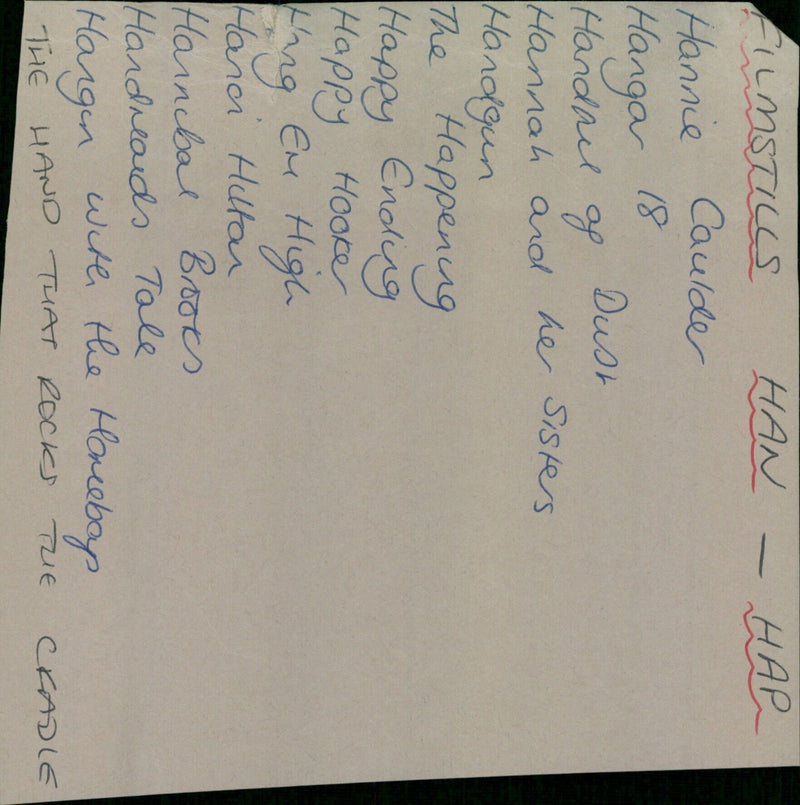 FILMSTILLS HAN — HAP
Hannie Caulder
Hangar 18
Handful of Dust
Hannah and her Sisters
Handgun
The Happening
Happy Ending
Happy Hooker
Hang Em High
Hanoi Hilton
Hannibal Brooks
Handmaids Tale
Hangin with the Homeboys
THE HAND THAT ROCKS THE CRADLE